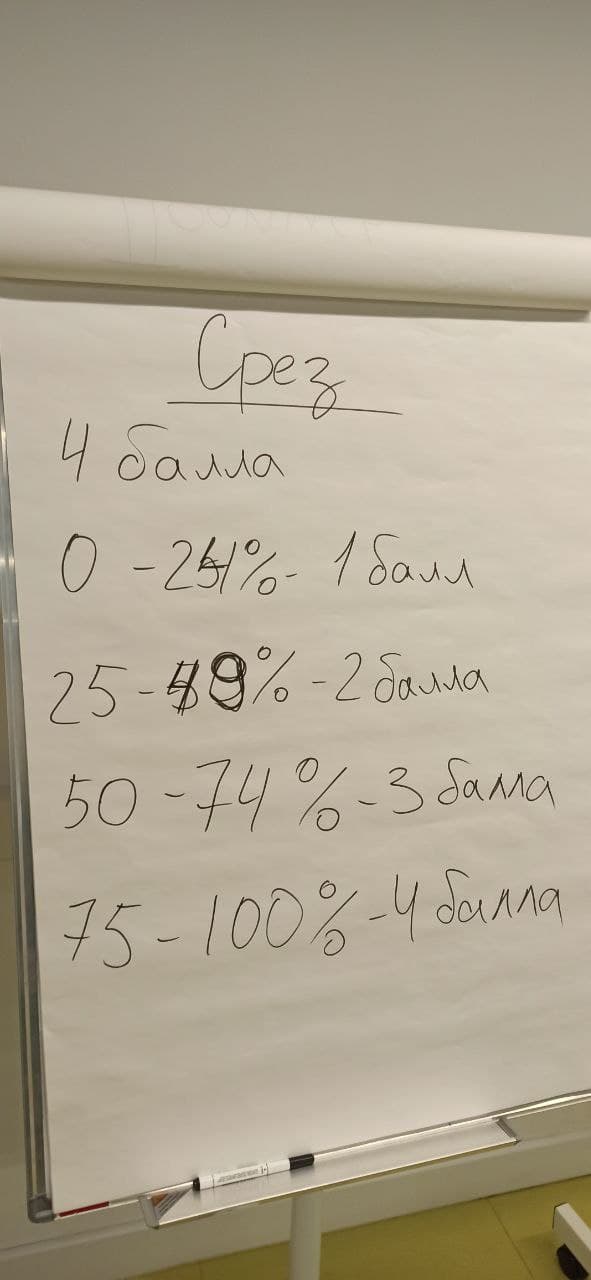 Срез
4 балла
0 - 24% - 1 балл
25 - 49% - 2 балла
50 - 74% - 3 балла
75 - 100% - 4 балла